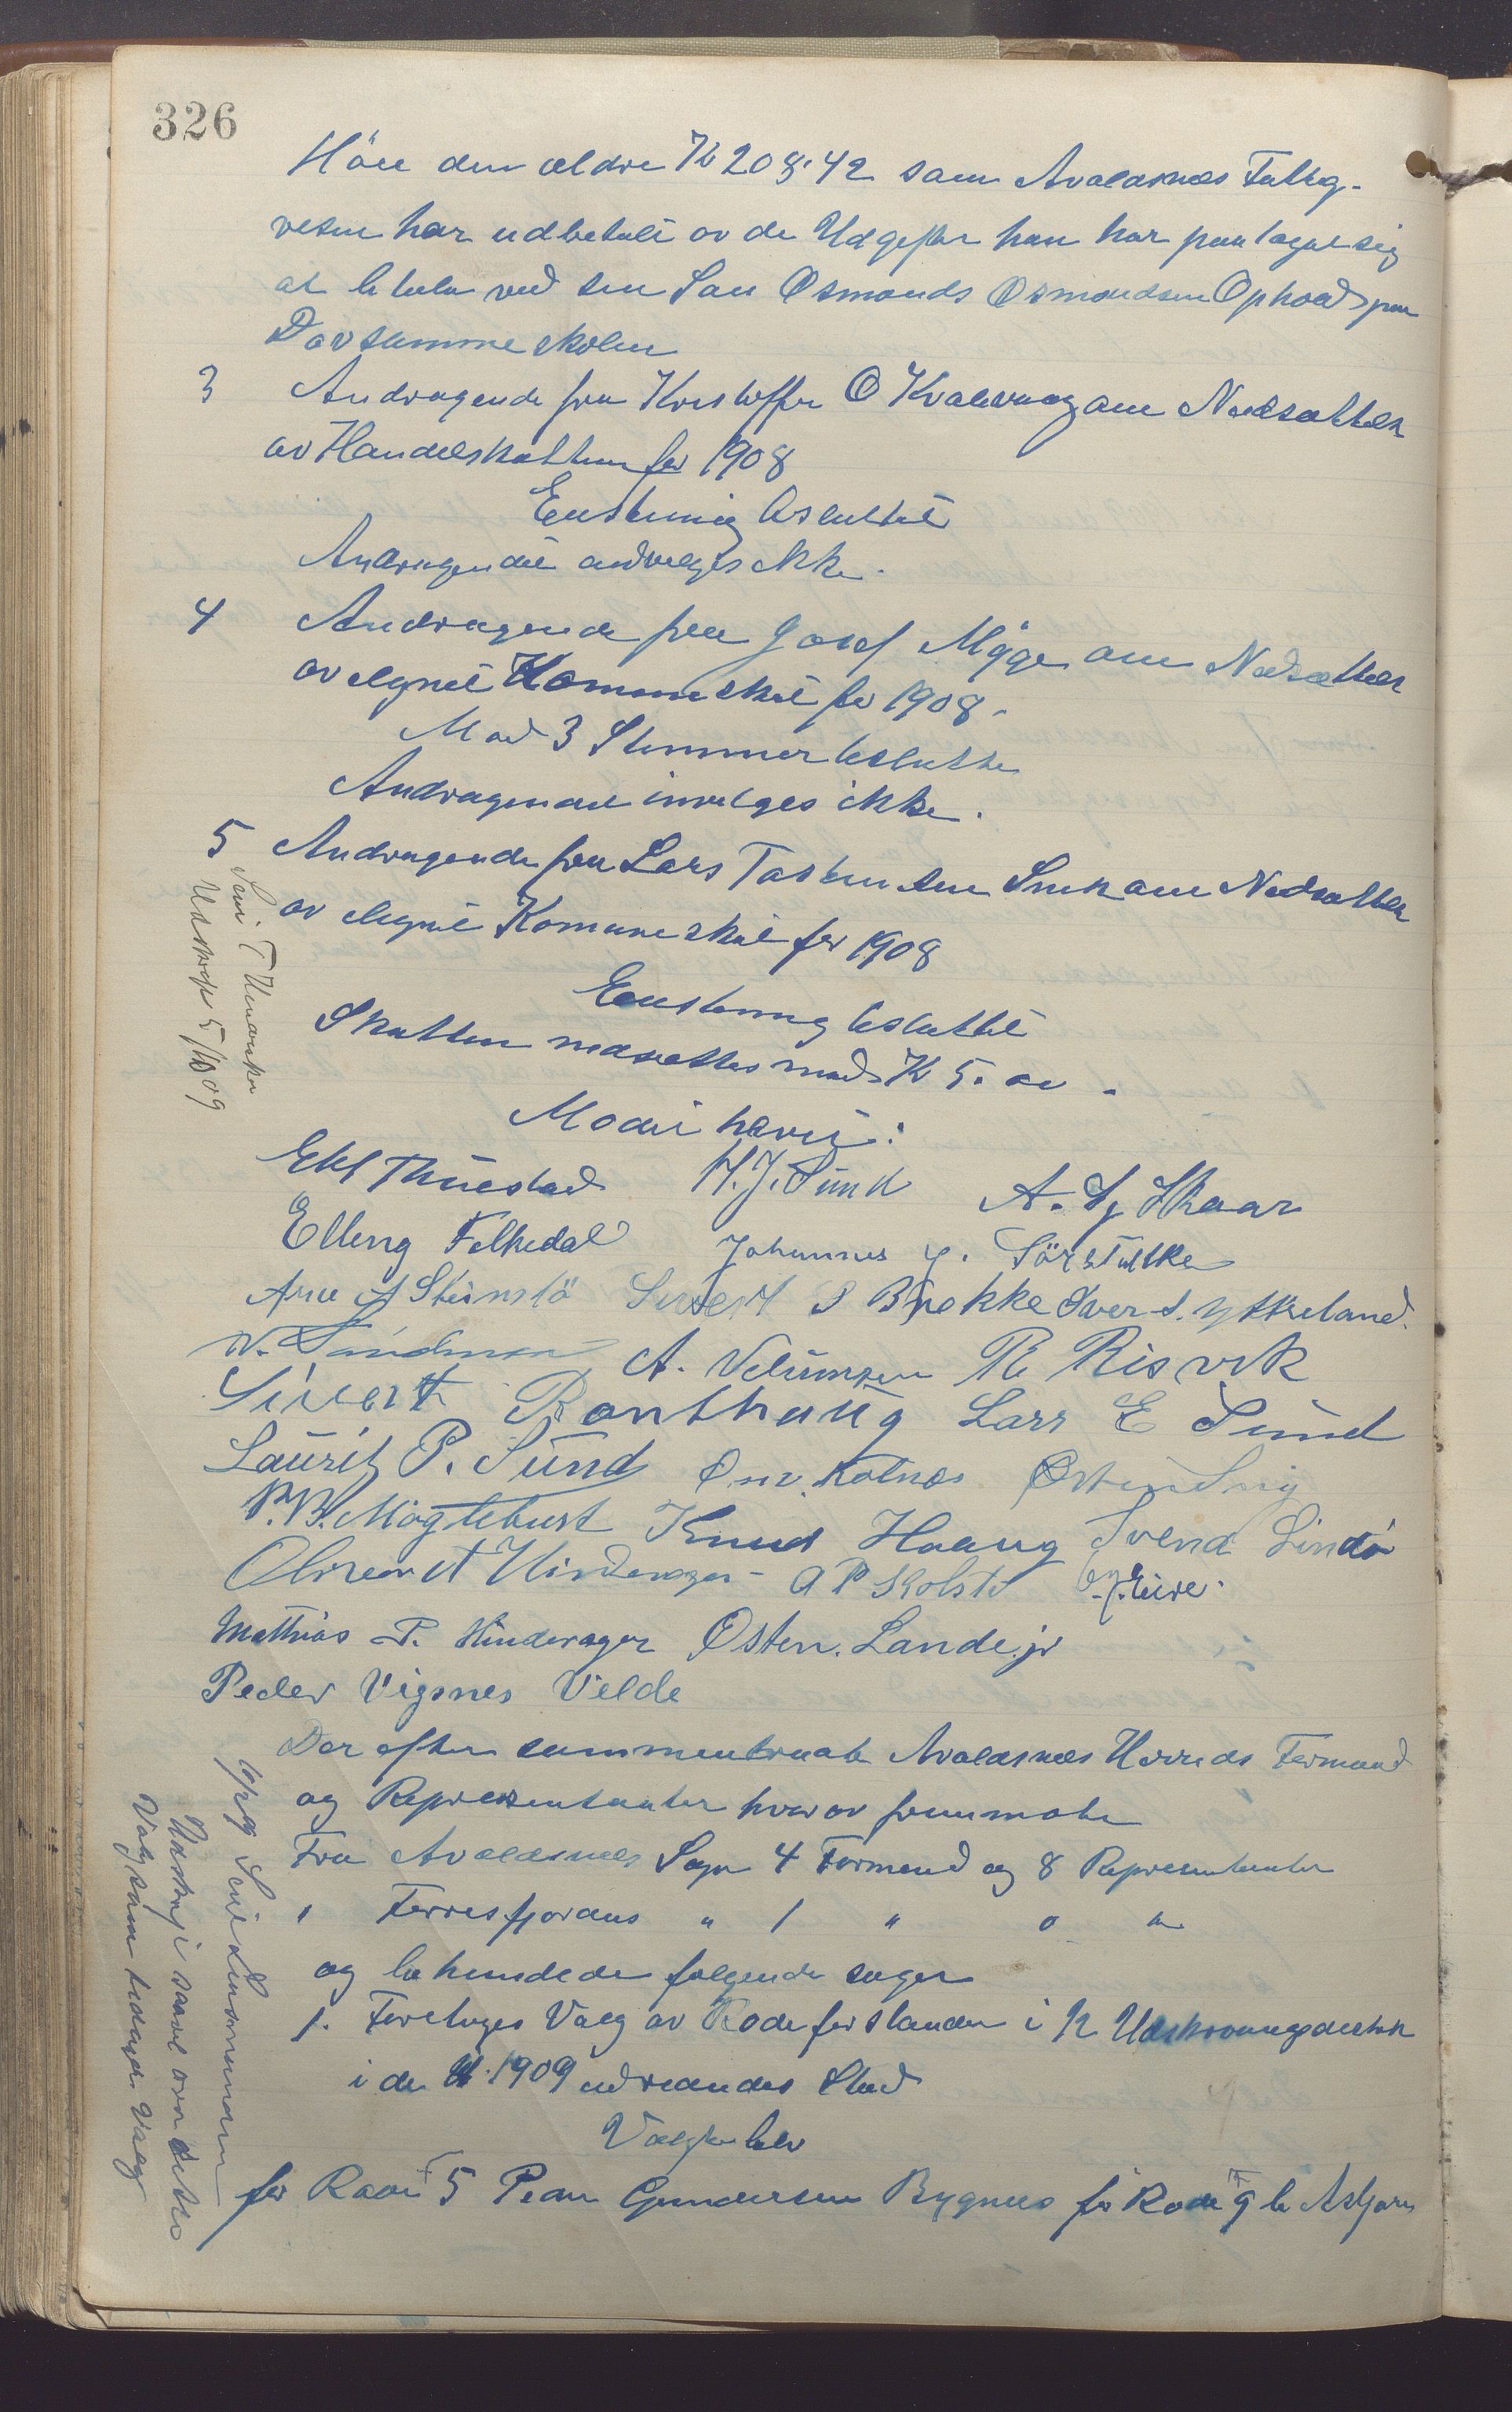 326
Håre den ældre Kr 208.42 som Avaldsnes Fattig-
vesen har udbetalt av de Udgifter han har paataget sig
at betale ved sin Søn Osmonds Osmondsen Ophold paa
Døvstumme skolen
3 Andragende fra Kristoffer O Kvalevaag om Nedsættelse
av Handelskatten for 1908
Enstemmig besluttet
Andragendet indvilges ikke.
4 Andragende fra Josef Myge om Nedsættelse
av lignet Komuneskat for 1908.
Mod 3 Stemmer besluttet
Andragendet invilges ikke.
5 Andragende fra Lars Torstensen Snik om Nedsættelse
av lignet Komuneskat for 1908
Enstemmig besluttet
Skatten nedsættes med Kr 5. 00.
Udskrift 5/10 09
Mødet hævet:
Thuestad H. J. Sund A. Skaar
Elling Felkedal Johannes Sørstokke
Arne Steinslø Sivert S Brekke Iver S. Ytreland
W. Sandmoen A. Velumsen R Risvik
Sivert Ronthaug Lars E Sund
Laurits P. Sund Kolnes Østen Snig
P. B. Møgtebust Knud Haaug Svend Lindø
Olmendt Hinderager A P Kolstø Eive.
Mathias P. Hinderager Østen. Lande. jr
Peder Vigsnes Velde
Der efter sammentraate Avaldsnes Herreds Formand
og Repræsentanter hvorav fremmøte
Fra Avaldsnes Sogn 4 Formend og 8 Repræsentanter
" Førresfjordens " 1 " 0 "
og behandlede følgende sager
1. Foretoges Valg av Rodeforstander i 12 Udskrivningsdistrik
i de U. 1909 udtrædendes Sted
Valgte blev
Lensmanden
Udskrift i saavel over dette
Valg som tidligere Valg
for Rode 5 Peder Gundersen Bygnes for Rode 9 b Asbjørn